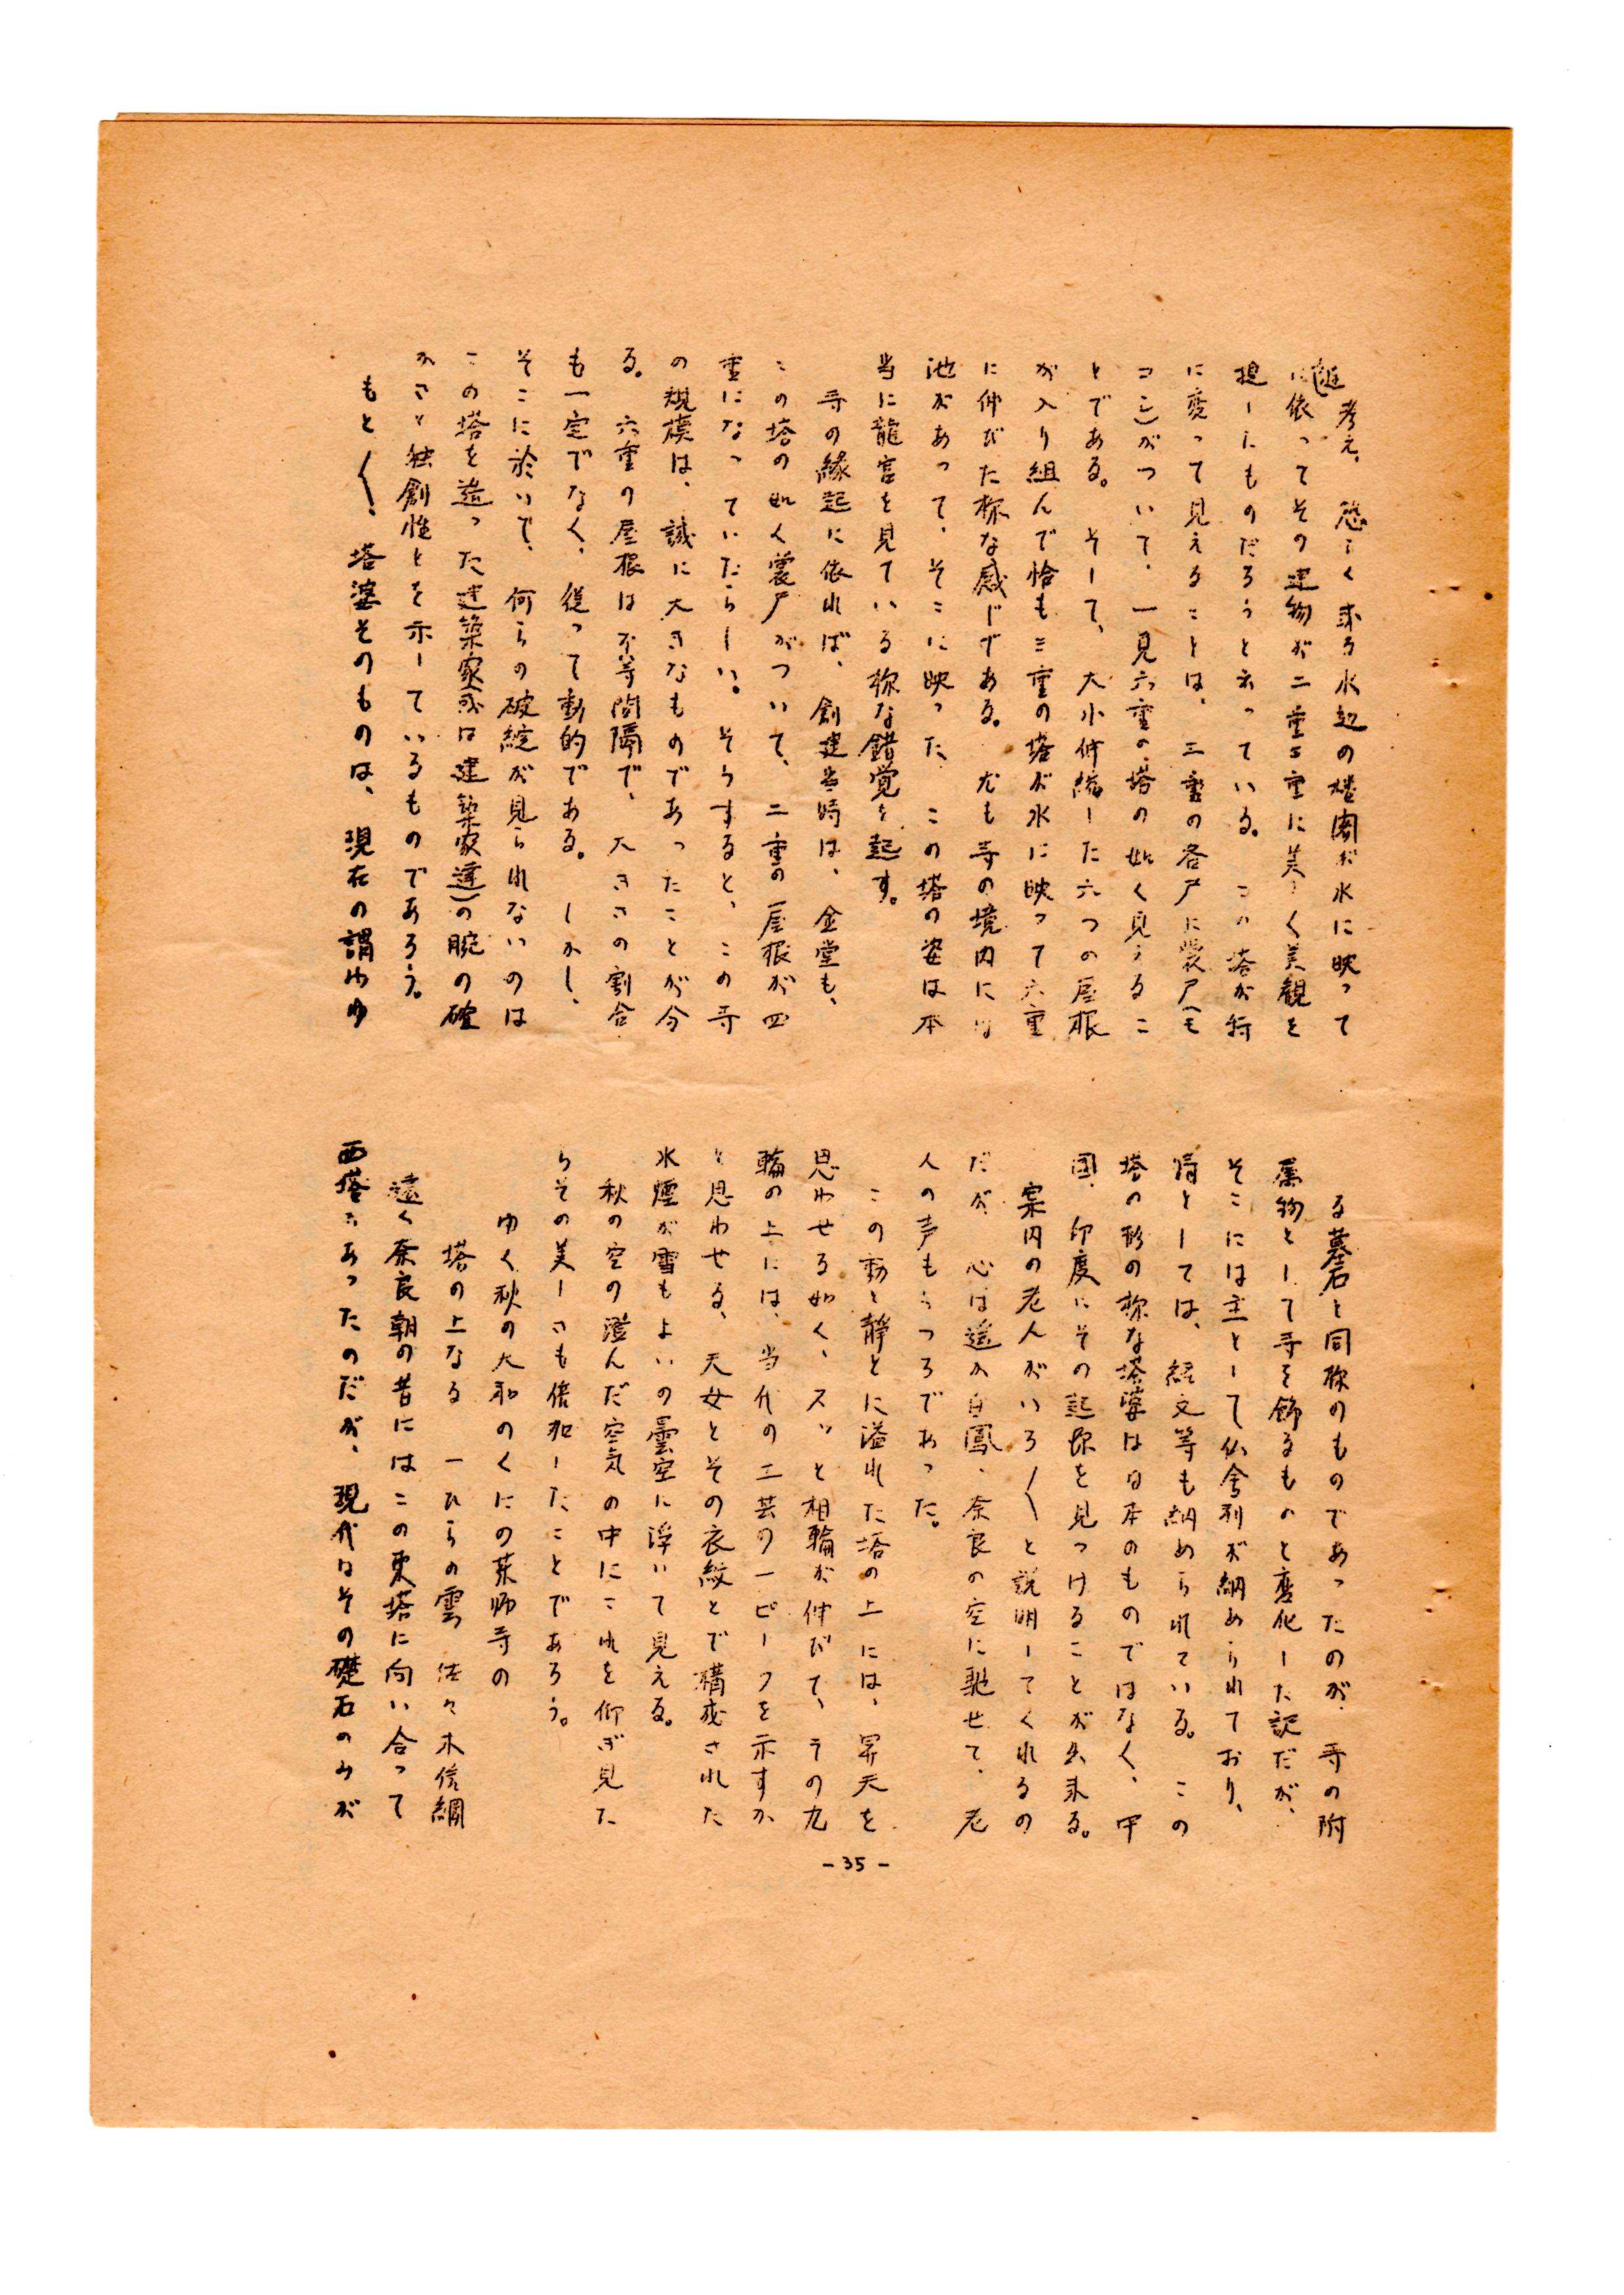 考え、恐らく來る水辺の樓閣が水に映って
に依ってその建物が二重三重に美しく美観を
提したものだろうと云っている。この塔が特
に変って見えることは、三重の各戸に裳戸(モ
コシ)がついて、一見六重の塔の如く見うるこ
とである。そして、大小伸縮した六つの屋根
が入り組んで恰も三重の塔が水に映って六重
に伸びた様な感じである。尤も寺の境内には
池があって、そこに映った、この塔の姿は本
当に龍宮を見ている様な錯覚を起す。
寺の縁起に依れば、創建当時は、金堂も、
この塔の如く裳戸がついて、二重の屋根が四
重になっていたらしい。そうすると、この寺
の規模は、誠に大きなものであったことが分
る。六重の屋根は不等間隔で、大きさの割合
も一定でなく、従って動的である。しかし、
そこに於いで、何らの破綻が見られないのは
この塔を造った建築家(或は建築家達)の腕の確
かさと独創性とを示しているものであろう。
もと〱、塔婆そのものは、現在の謂わゆ
る墓石と同様のものであったのが、寺の附
属物として寺を飾るものと変化した訳だが、
そこには主として仏舎利が納められており、
時としては、経文等も納められている。この
塔の形の様な塔婆は日本のものではなく、中
国、印度にその起源を見つけることが出来る。
案内の老人がいろ〱と説明してくれるの
だが、心は遙か白鳳、奈良の空に馳せて、老
人の声もうつろであった。
この動と静とに溢れた塔の上には、昇天を
思わせる如く、スッと相輪が伸びて、その九
輪の上には、当代の工芸の一ピークを示すか
と思わせる、天女とその衣紋とで構成された
水煙が雪もよいの曇空に浮いて見える。
秋の空の澄んだ空気の中にこれを仰ぎ見た
らその美しさも倍加したことであろう。
ゆく秋の大和のくにの薬師寺の
塔の上なる 一ひらの雲 佐々木信綱
遠く奈良朝の昔にはこの東塔に向い合って
西塔もあったのだが、現代はその礎石のみが
-35-